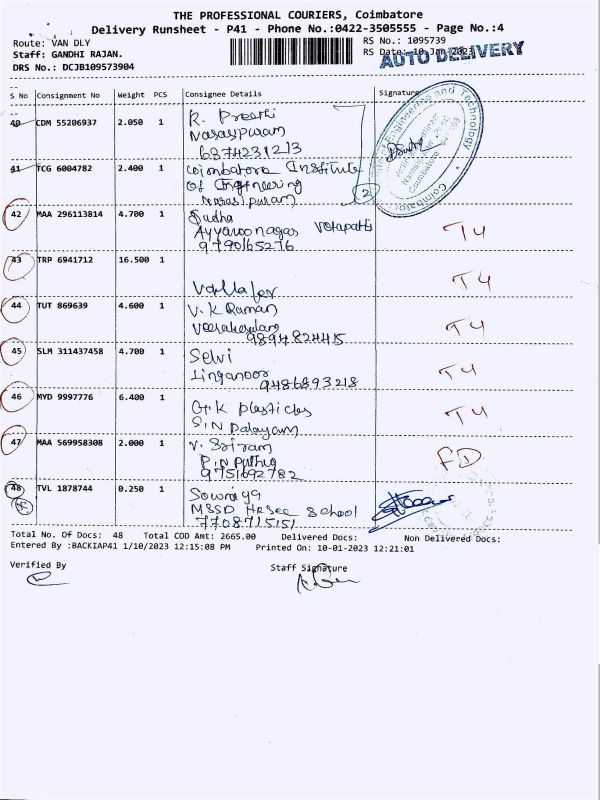 THE PROFESSIONAL COURIERS, Coimbatore
Delivery Runsheet - P41 - Phone No.:0422-3505555 - Page No.:4
Route: VAN DLY
RS No.: 1095739
Staff: GANDHI RAJAN.
RS Date: 10-Jan-2023
AUTO DELIVERY
DRS No.: DCJB109573904
S No Consignment No Weight PCS Consignee Details Signature
40 CDM 55206937 2.050 1 K. Preethi
Narasipuram
6874231213
41 TCG 6004782 2.400 1 Coimbatore Institute
Of Engineering
Narasipuram
2
42 MAA 296113814 4.700 1 Sudha
Ayyaroonagar
9790165276
T4
43 TRP 6941712 16.500 1
T4
44 TUT 869639 4.600 1 V. K Raman
9894824415
T4
45 SLM 311437458 4.700 1 Selvi
Linganoor
9486893218
T4
46 MYD 9997776 6.400 1 G.K plastics
S.N Palayam
T4
47 MAA 569958308 2.000 1 V. Sriram
P.N Puthur
9751692782
FD
48 TVL 1878744 0.250 1 Sowmiya
MSSD Hr Sec School
7708715151
Total No. Of Docs: 48 Total COD Amt: 2665.00 Delivered Docs: Non Delivered Docs:
Entered By :BACKIAP41 1/10/2023 12:15:08 PM Printed On: 10-01-2023 12:21:01
Verified By
Staff Signature